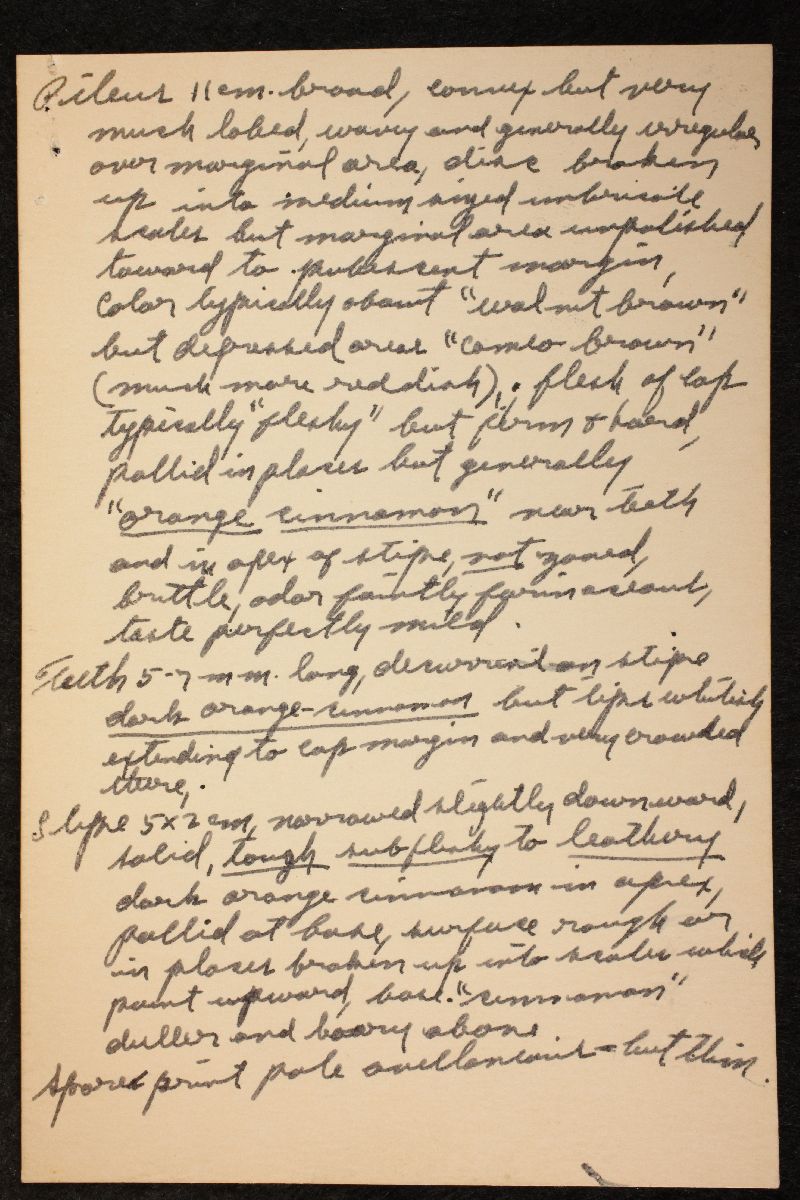 Pileus 11 cm. broad, convex but very
much lobed, wavy and generally irregular
over marginal area, disc broken
up into medium sized imbricate
scales but marginal area unpolished
toward to pubescent margin,
color typically about "walnut brown"
but depressed areas "cameo brown"
(much more reddish), flesh of cap
typically "fleshy" but firm & hard,
pallid in places but generally
"orange cinnamon" near teeth
and in apex of stipe, not zoned,
brittle, odor faintly farinaceous,
taste perfectly mild.
Teeth 5-7 mm. long, decurrent on stipe
dark orange-cinnamon but tips whitish
extending to cap margin and very crowded
there.
Stipe 5x2 cm, narrowed slightly downward,
solid, tough subfleshy to leathery
dark orange cinnamon in apex,
pallid at base, surface rough or
in places broken up into scales which
point upward, base "cinnamon"
duller and hoary above
Spore print pale avellaneous - but thin.